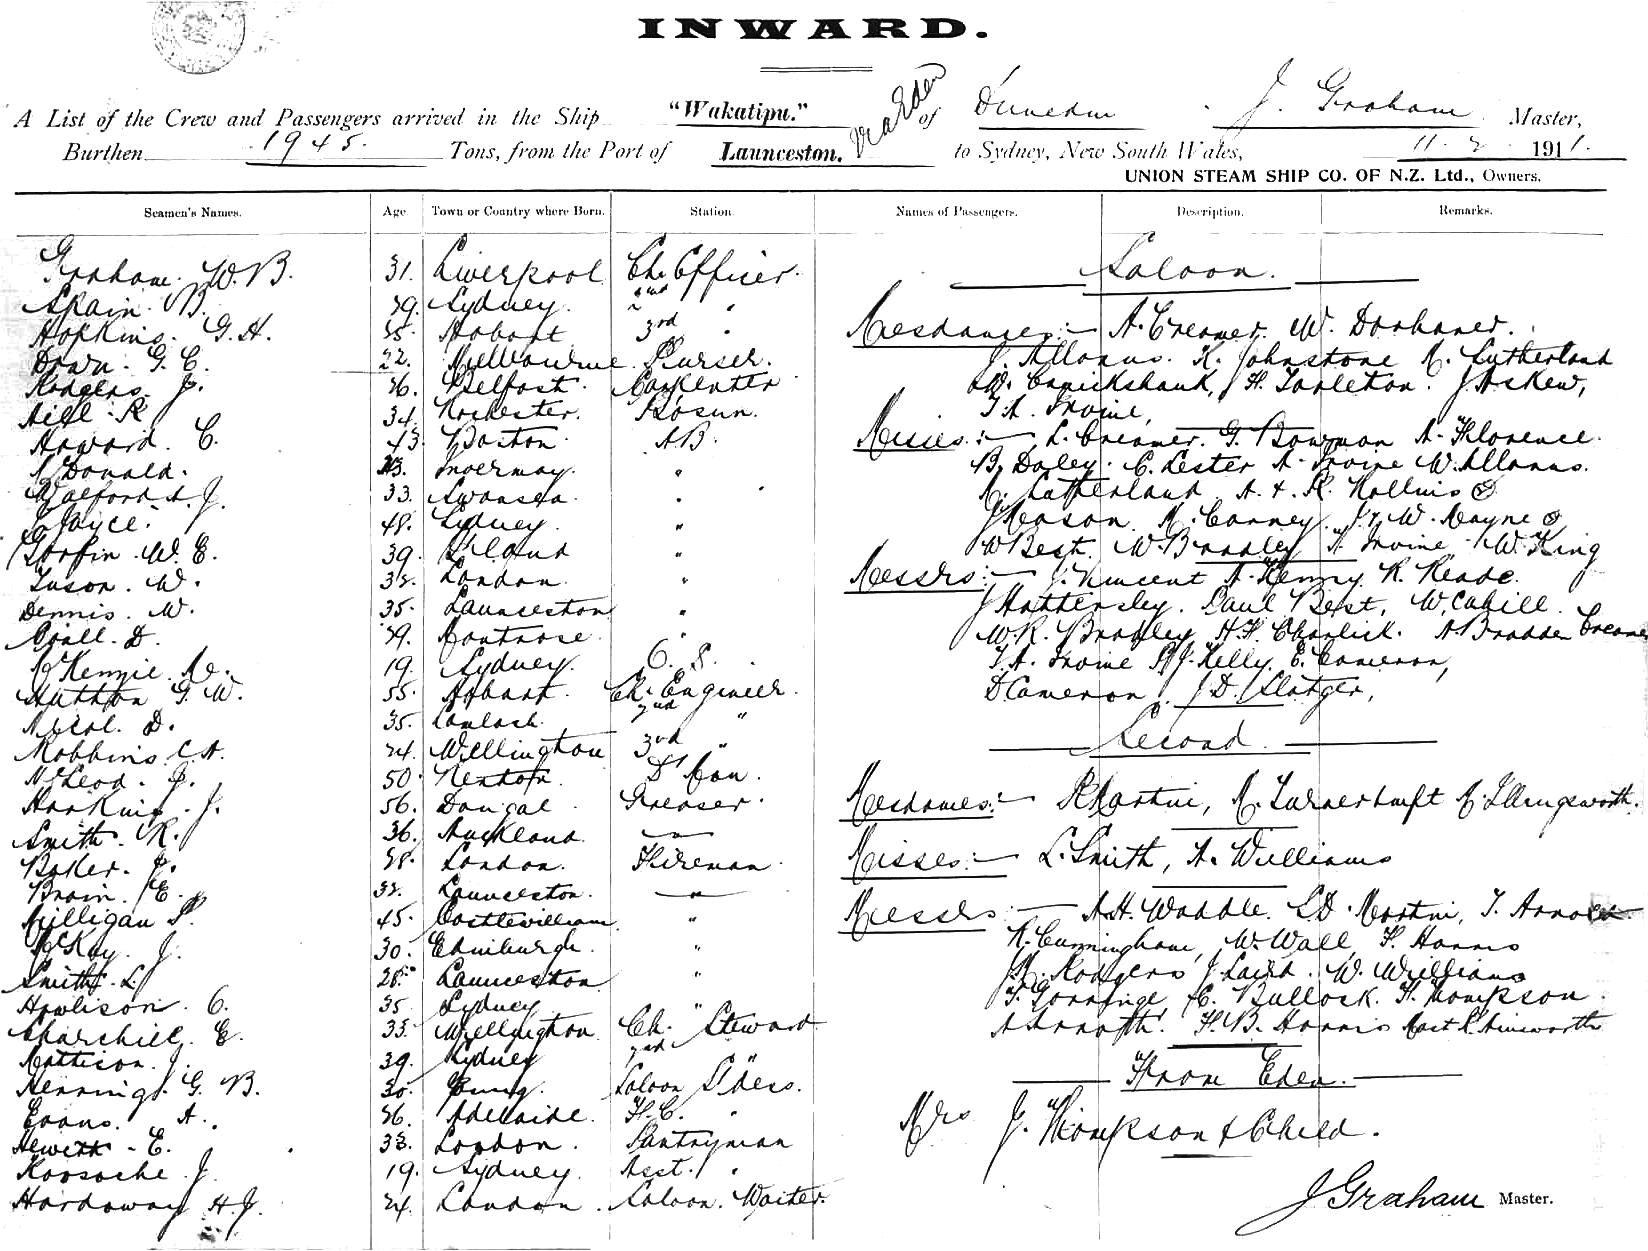 INWARD.
A List of the Crew and Passengers arrived in the Ship "Wakatipu." of Dunedin J. Graham Master,
via Eden
Burthen 1945. Tons, from the Port of Launceston, to Sydney, New South Wales, 11. 2 1911.
UNION STEAM SHIP CO. OF N.Z. Ltd., Owners.
Seamen's Names. Age Town or Country where Born. Station. Names of Passengers. Description. Remarks.
Graham. W. B. 31. Liverpool Ch. Officer.
Spain. B. 29. Sydney. 2nd "
Hopkins. G. H. 55. Hobart 3rd "
G. E. 22. Melbourne Purser.
Rodgers. J. 26. Belfast. Carpenter
R 34. Rochester. Bosun.
Howard. C. 43. Boston. A B.
McDonald. 23. Invermay. "
Walford A. J. 33. Swansea. "
Joyce. 48. Sydney. "
W. E. 39. "
W. 32. London. "
Dennis. W. 35. Launceston "
D. 29. Montrose. "
McKenzie. 19. Sydney. O. S.
Hutton G. W. 55. Hobart. Ch. Engineer.
Nicol. D. 35. 2nd "
Robbins. C A. 24. Wellington 3rd "
McLeod. J. 50. D'Man.
Hawkins. J. 56. Greaser.
Smith. R. 36. Auckland "
Baker. J. 28. London. Fireman.
Brain. E. 32. Launceston. "
Milligan P. 45. Castlewilliam "
McKay. J. 30. Edinburgh. "
Smith. L. 28. Launceston "
Howlison. C. 35. Sydney "
Churchill. E. 35. Wellington Ch. Steward
Mattison. J. 39. Sydney 2nd "
Hennings. G. B. 30. Young. Saloon S'dess.
Evans. A. 26. Adelaide. F. C.
Hewitt - E. 33. London. Pantryman
J. 19. Sydney. Asst. "
Hardaway H. J. 24. London. Saloon. Waiter.
Saloon.
Mesdames:- A. Creamer. W.
J. Allanus. K. Johnstone M. Sutherland
W. Cruickshank, H. Tarleton. J Askew,
T. A. Irvine,
Misses:- L. Creamer. G. Bowman A. Florence.
B. Daley. C. Lester A. Irvine W. Allanus.
M. Sutherland A. & R. Rollins (2)
J Mason. M. Carney. J. & W. Mayne (2)
W Best. W. Bradley H. Irvine W. King
Messrs:- J. Vincent A. Henry R. Reade.
J Hattersley. Paul Best, W. Cahill.
W. R. Bradley H. H. Charlick. A Bradden Creamer
T. A. Irvine P. J. Kelly, E. Cameron,
D Cameron, J. D. Slatger,
Second.
Mesdames:- P Martin, M. Turnertwift M. Illingsworth.
Misses:- L. Smith, A. Williams
Messrs:- A. H. Waddle. L D. Martin, T. Arnold
R. Cunningham, W. Wall, F. Harris
M. Rodgers J. Laird. W. Williams
F. Gorringe C. Bullock. H. Thompson.
F. B. Harris Mast R. Ainsworth
From Eden.
Mrs J. Thompson & Child.
J Graham Master.